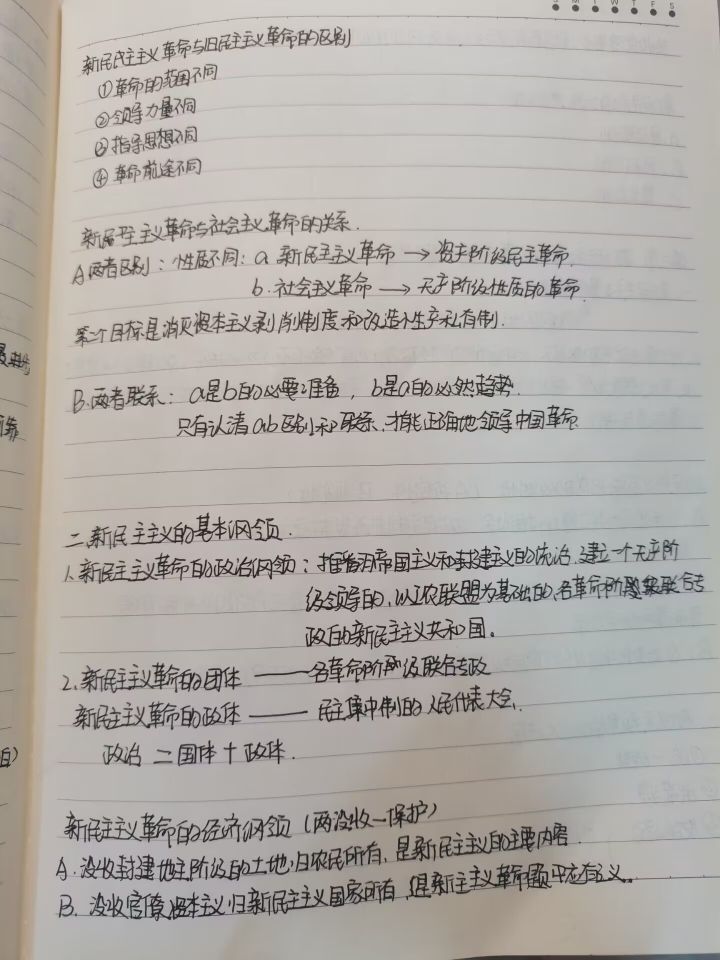 S M T W T F S
新民主主义革命与旧民主主义革命的区别
①革命的范围不同
②领导力量不同
③指导思想不同
④革命前途不同
新民主主义革命与社会主义革命的关系.
A.两者区别：性质不同：a 新民主主义革命 → 资产阶级民主革命.
b.社会主义革命 → 无产阶级性质的革命
第二个目标是消灭资本主义剥削制度和改造小生产私有制.
B.两者联系：a是b的必要准备，b是a的必然趋势.
只有认清ab区别和联系，才能正确地领导中国革命
二.新民主主义的基本纲领.
1.新民主主义革命的政治纲领：推翻帝国主义和封建主义的统治，建立一个无产阶
级领导的，以工农联盟为基础的，各革命阶级联合专
政的新民主主义共和国。
2.新民主主义革命的团体 —— 各革命阶级联合专政
新民主主义革命的政体 —— 民主集中制的人民代表大会.
政治 = 国体 + 政体.
新民主主义革命的经济纲领（两没收一保护）
A.没收封建地主阶级的土地归农民所有，是新民主主义的主要内容.
B.没收官僚资本主义归新民主主义国家所有，是新主主义革命题中应有之义。